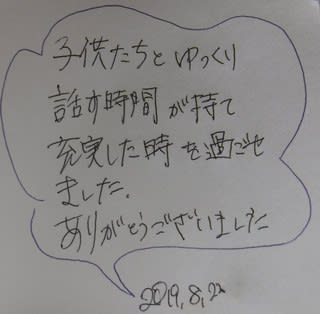 子供たちと ゆっくり
話す時間が持て
充実した時を過ごせ
ました.
ありがとうございました
2019,8,22